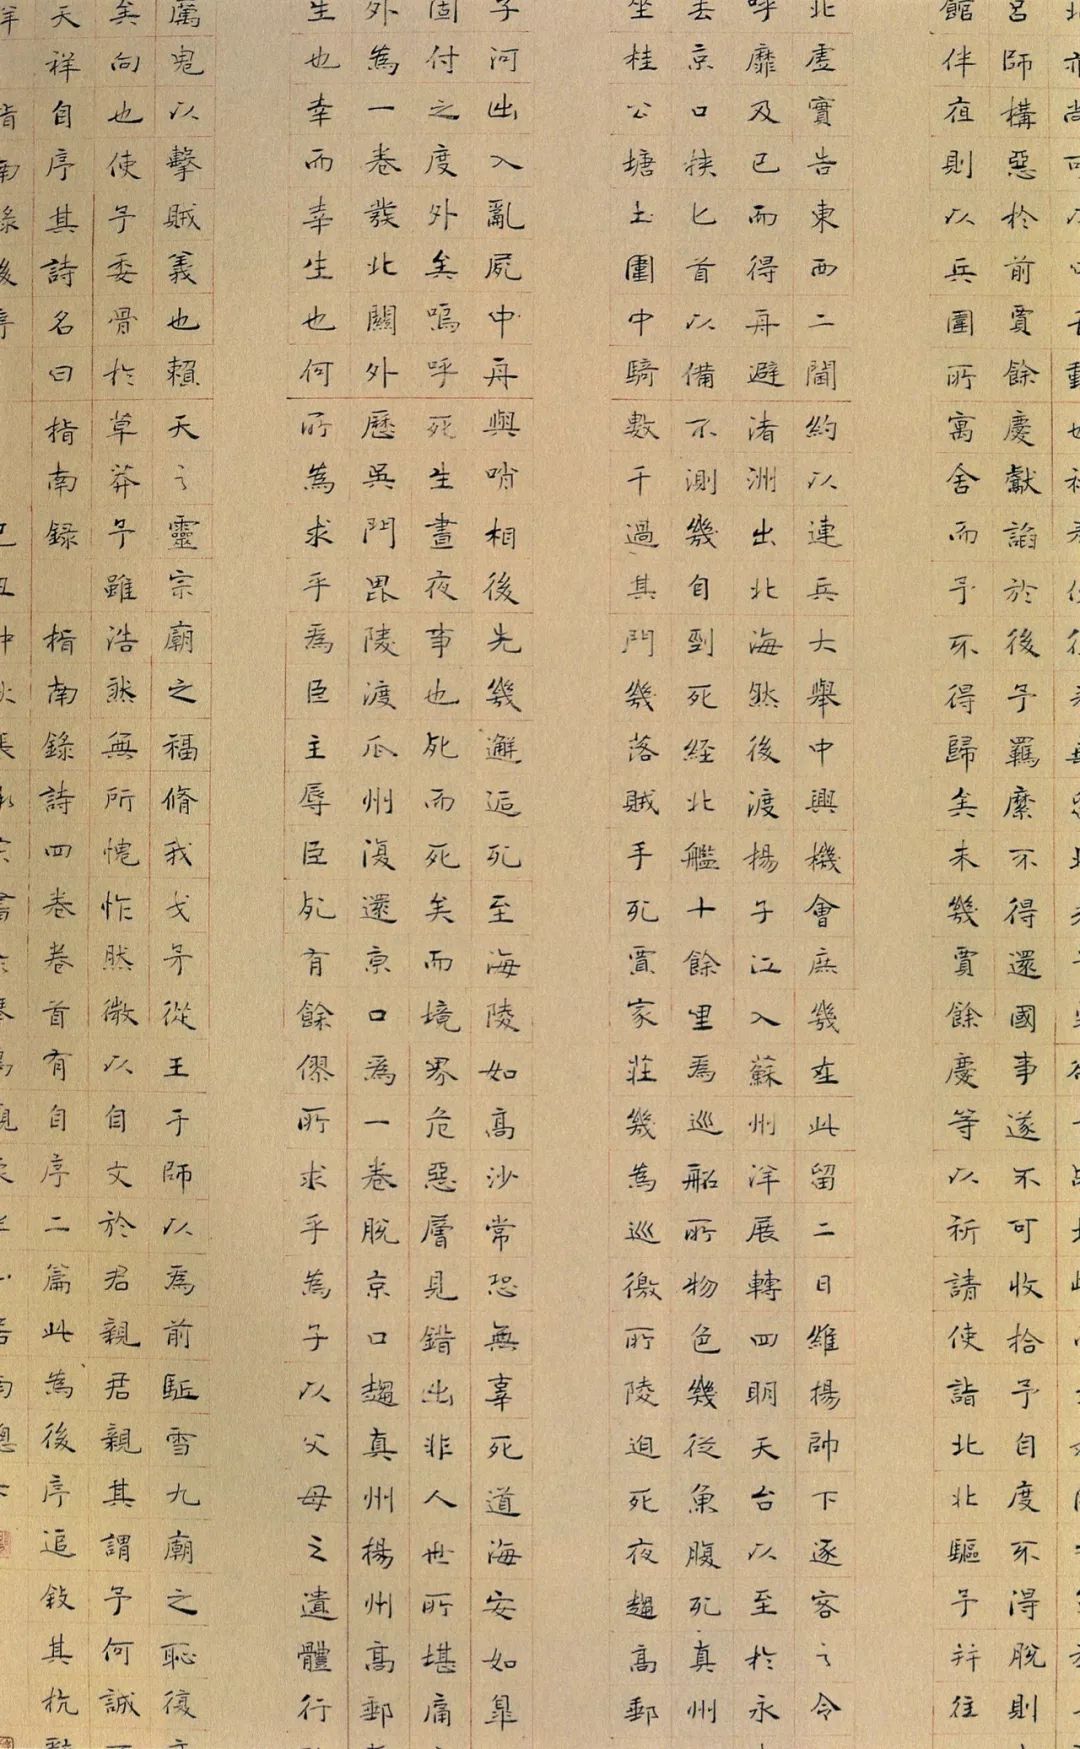 呂師構惡於前賈餘慶獻諂於後予羈縻不得還國事遂不可收拾予自度不得脫則
館伴夜則以兵圍所寓舍而予不得歸矣未幾賈餘慶等以祈請使詣北北驅予并往
北虛實告東西二閫約以連兵大舉中興機會庶幾在此留二日維揚帥下逐客之令
呼靡及已而得舟避渚洲出北海然後渡揚子江入蘇州洋展轉四明天台以至於永
去京口挾匕首以備不測幾自剄死経北艦十餘里為巡船所物色幾從魚腹死真州
坐桂公塘土圍中騎數千過其門幾落賊手死賈家莊幾為巡徼所陵迫死夜趨高郵
子河出入亂屍中舟與哨相後先幾邂逅死至海陵如高沙常恐無辜死道海安如皋
固付之度外矣嗚呼死生晝夜事也死而死矣而境界危惡層見錯出非人世所堪痛
外為一卷發北關外歷吳門毘陵渡瓜州復還京口為一卷脫京口趨真州楊州高郵
生也幸而幸生也何所為求乎為臣主辱臣死有餘僇所求乎為子以父母之遺體行
厲鬼以擊賊義也賴天之靈宗廟之福脩我戈矛從王于師以為前駈雪九廟之恥復
矣向也使予委骨於草莽予雖浩然無所愧怍然微以自文於君親君親其謂予何誠
天祥自序其詩名曰 指南録 指南錄詩四卷卷首有自序二篇此為後序追敘其抗